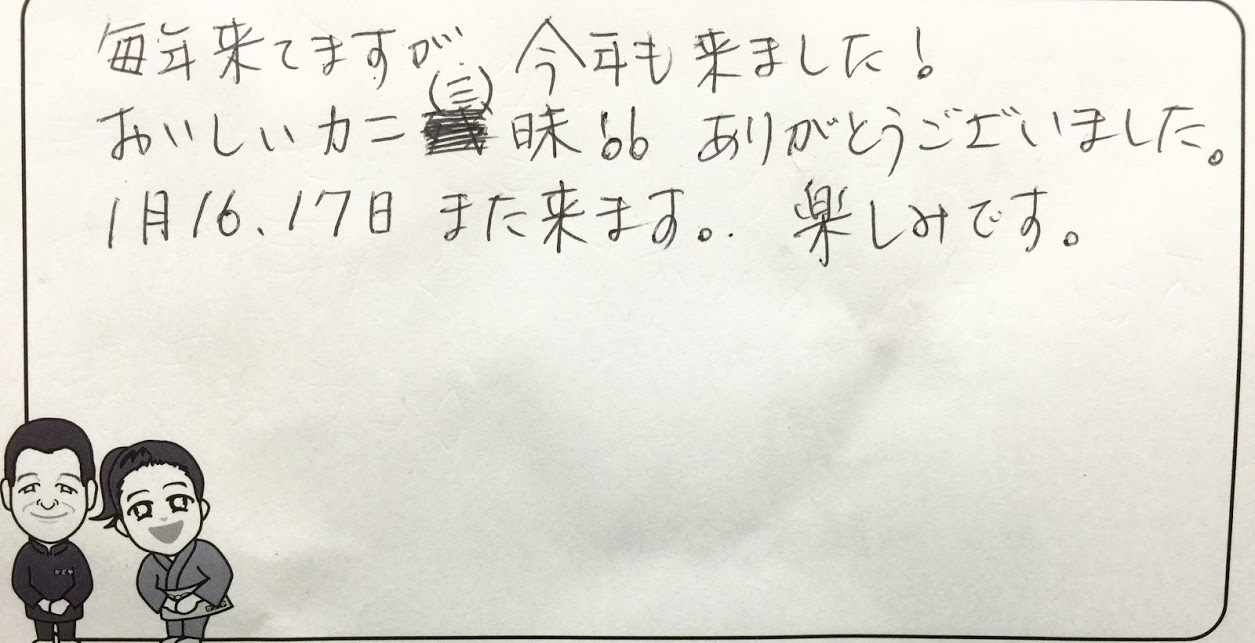 毎年来てますが 今年も来ました!
おいしいカニ(三)昧!! ありがとうございました。
1月16、17日 また来ます。. 楽しみです。